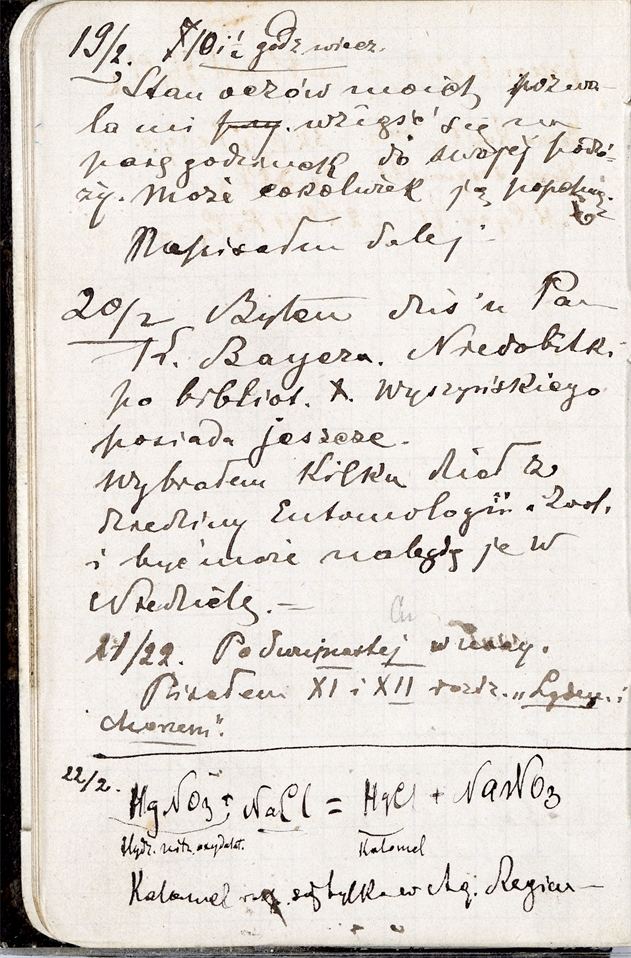 19/2. 10ii godz wiecz.
Stan oczów moich pozwa-
la mi wziąść się na
parę godzinek do swojej podró-
ży. Może cokolwiek ją popchnę.
Napisałem dalej -
20/2 Byłem dziś u Pan
K. Bayera. Niedobitki
po bibliot. X. Wyszyńskiego
posiada jeszcze.
Wybrałem kilka dzieł z
dziedziny Entomologii i Zool.
i być może nabędę je w
Niedzielę. —
21/22. Po dwunastej w nocy.
Pisałem XI i XII rozdz. „Lądem i
morzem".
22/2.
HgNO3 + NaCl = HgCl + NaNO3
Hydr. nitr. oxydat. Kalomel
Kalomel się tylko w Aq. Regia